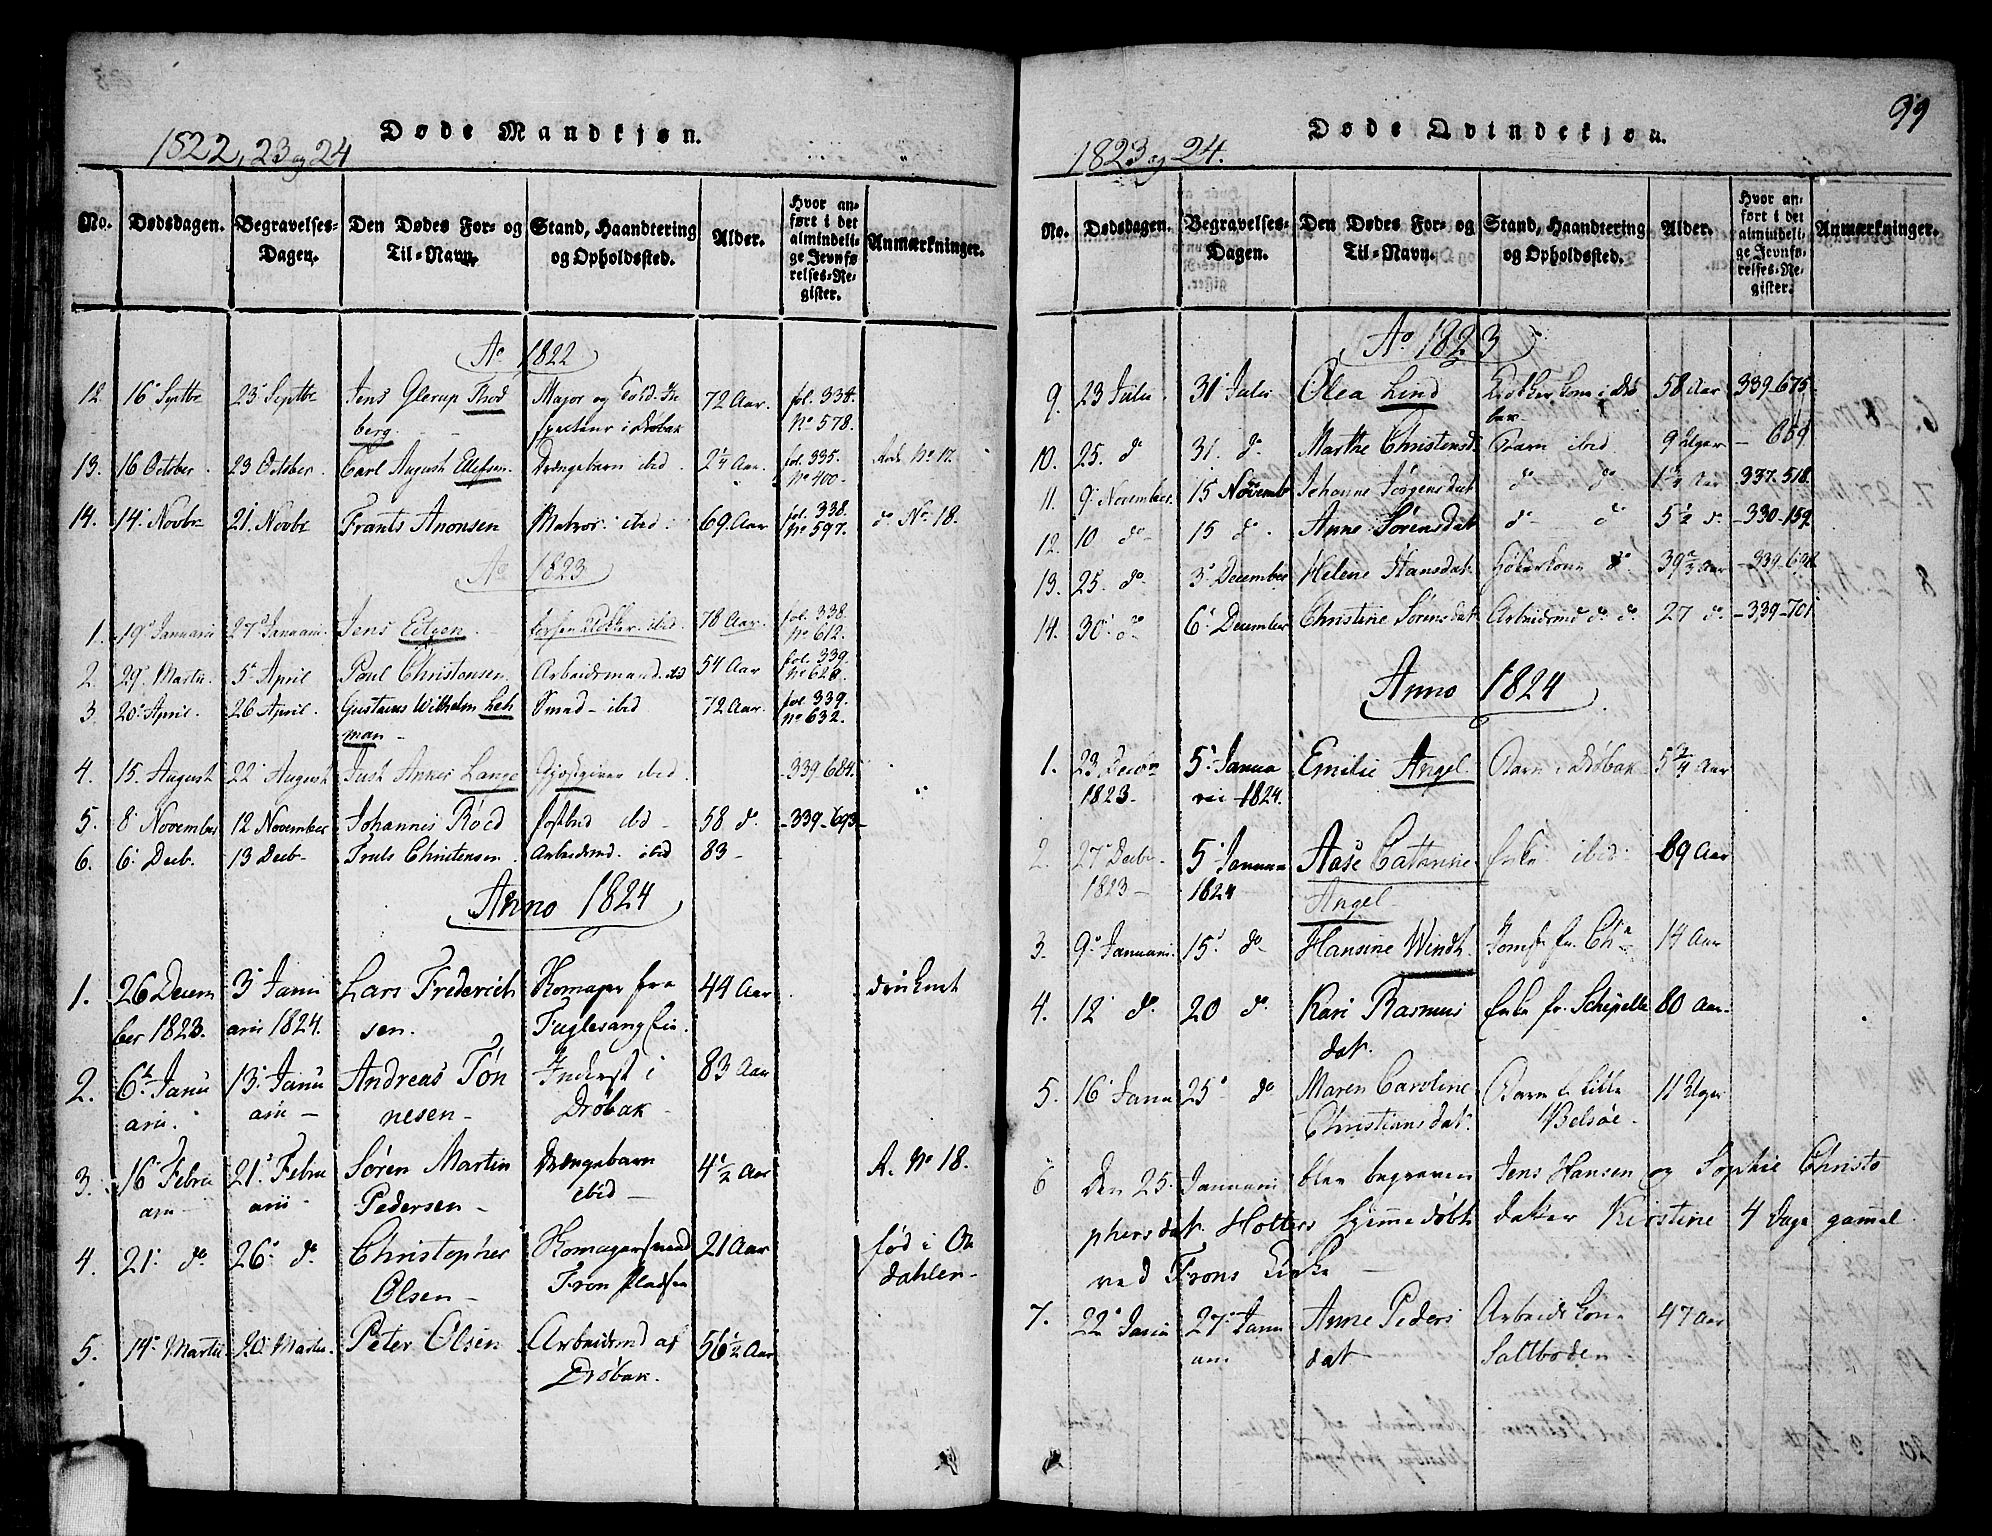 Døde Mandkjøn.
1822, 23 og 24
No. Dødsdagen. Begravelses-Dagen. Den Dødes For- og Til-Navn. Stand, Haandtering og Opholdssted. Alder. Hvor anført i det almindelige Jevnførelses-Register. Anmærkninger.
Ao 1822
12. 16 Septbr 23 Septbr Jens Glerup Thod Major og Told-In 72 Aar. fol. 338.
berg. specteur i Drøbak No 578.
13. 16 October. 23 October. Carl August Ellefsen Drængebarn ibid. 2¼ Aar fol. 335. No 17.
No 400.
14. 14 Novbr 21 Novbr Frants Anonsen Matros ibid. 69 Aar fol. 338. do No 18.
No 597.
Ao 1823
1. 19 Januarii 27 Januarii Jens Eitzen. ibid. 78 Aar. fol. 338.
No 612.
2. 29 Martii. 5 April Poul Christensen Arbeidsmand ibid 54 Aar fol. 339.
No 628.
3. 20 April. 26 April. Gustavus Wilhelm Leh Smed - ibid 72 Aar. fol 339.
man - No 632.
4. 15. August 22 August Just Anker Lange Gjæstgiver ibid. 339 684.
5. 8 November 12 November Johannes Röed ibid - 58 do. -339-693-
6. 6 Decb. 13 Decb- Truls Christensen. Arbeidsmd. ibid 83 -
Anno 1824
1. 26 Decem 3 Janu Lars Frederich Homager fra 44 Aar druknet
ber 1823. arii 1824. sen. Fuglesang
2. 6 Janu 13 Janu Andreas Tön Inderst i 83 Aar
arii. arii - nesen - Drøbak -
3. 16 Febru 21 Febru Søren Martin Drængebarn 4½ Aar A. No 18.
arii arii - Pedersen - ibid -
4. 21 do 26 do Christopher 21 Aar fød i O
Olsen - Fron Pladsen dahlen -
5. 14 Martii 20 Martii. Peter Olsen Arbeidsmd af 56½ Aar
Drøbak.
99
Døde Qvindekjøn.
1823 og 24.
No. Dødsdagen. Begravelses-Dagen. Den Dødes For- og Til-Navn. Stand, Haandtering og Opholdssted. Alder. Hvor anført i det almindelige Jevnførelses-Register. Anmærkninger.
Ao 1823
9. 23 Julii 31 Julii Olea Lind Klokkerkone i Drö 58 Aar 339-675-
bak
10. 25. do 31. do Marthe Christensd. Barn ibid 9 Uger - 659
11. 9 November. 15 Novemb Johanne Jörgensdat do do 1½ Aar 337. 518.
12. 10 do - 15 do - Anne Sörensdat do - do 5½ do - 330-159
13. 25. do 3 December Helene Hansdat. do 39 Aar -339-698
14. 30 do 6 December Christine Sörensdat Arbeidsmd do do 27 do -339-701
Anno 1824
1. 23 Decbr 5 Janua Emilie Angel Barn i Dröbak 5¾ Aar
1823. rii 1824.
2. 27 Decbr. 5 Januar Aase Catarine Enke ibid. 89 Aar
1823 - 1824 Angel
3. 9 Januarii. 15 do - Hansine Windt Jomfr. 14 Aar
4. 12 do. 20 do Kari Rasmus Enke fr. Schipelle 80 Aar.
dat.
5. 16 Janu 25 do Maren Caroline Barn f. lille 11 Uger
Christiansdat. Belsöe.
6 Den 25 Januarii blev begraven Jens Hansen og Sophie Christo
phersdat. Holters hjemmedöbte datter Kirstine 4 Dage gammel.
ved Frons Kirke -
7. 22 Janu 27 Janu Anne Peders Arbeidskone 47 Aar
arii dat Saltboden